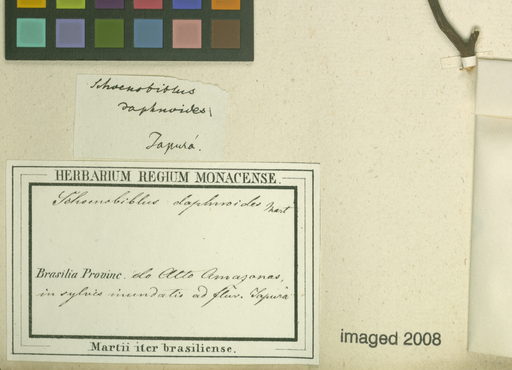 Schoenobiblus
daphnoides
Japurá.
HERBARIUM REGIUM MONACENSE.
Schoenobiblus daphnoides Mart
Brasilia Provinc. do Alto Amazonas,
in sylvis inundatis ad fluv. Japurá
Martii iter brasiliense.
imaged 2008